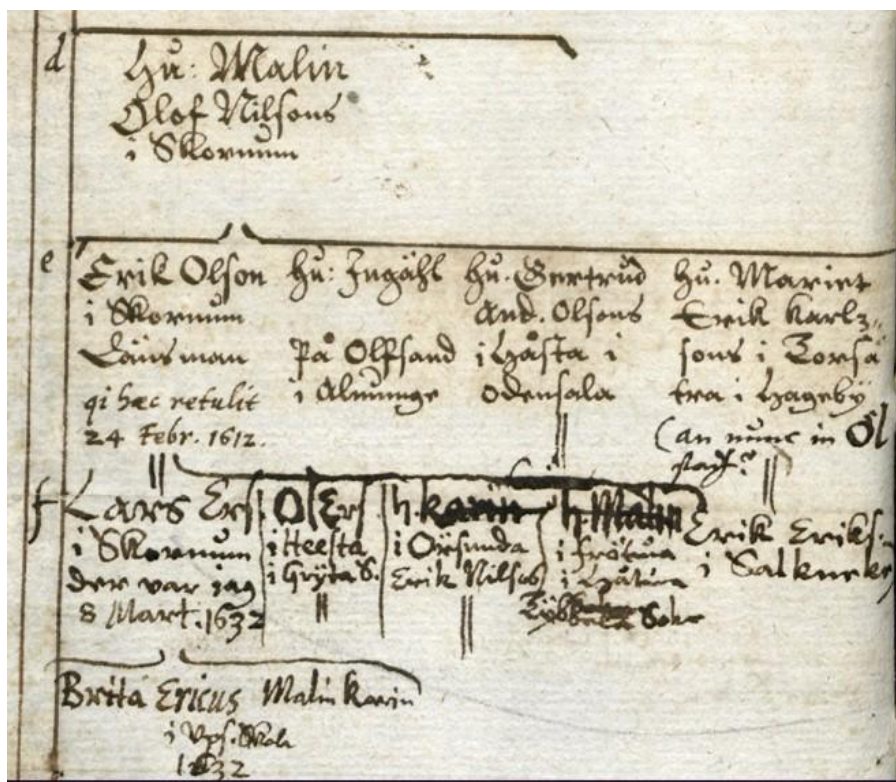 d
Hu: Malin
Olof Nilsons
i Skornum
e
Erik Olson
i Skornum
Länsman
qi hæc retulit
24 Febr. 1612.
Hu: Ingähl
På Olfsand
i Almunge
Hu. Gertrud
And. Olsons
i Håsta i
Odensala
Hu. Mariet
Erik Karlz=
sons i Torsä
tra i Hageby
(an nunc in Öl
stad?
f
Lars Ers.
i Skornum
der var jag
8 Mart. 1632
Ol Ers.
i Heesta
i Gryta S.
h. Karin
i Örsunda
Erik Nilsos
h. Malin
i Frötuna
i Håtuna
Sokn
Erik Eriks.
i Salkneke
Brita Ericus Malin Karin
i Vps. Skole
1632